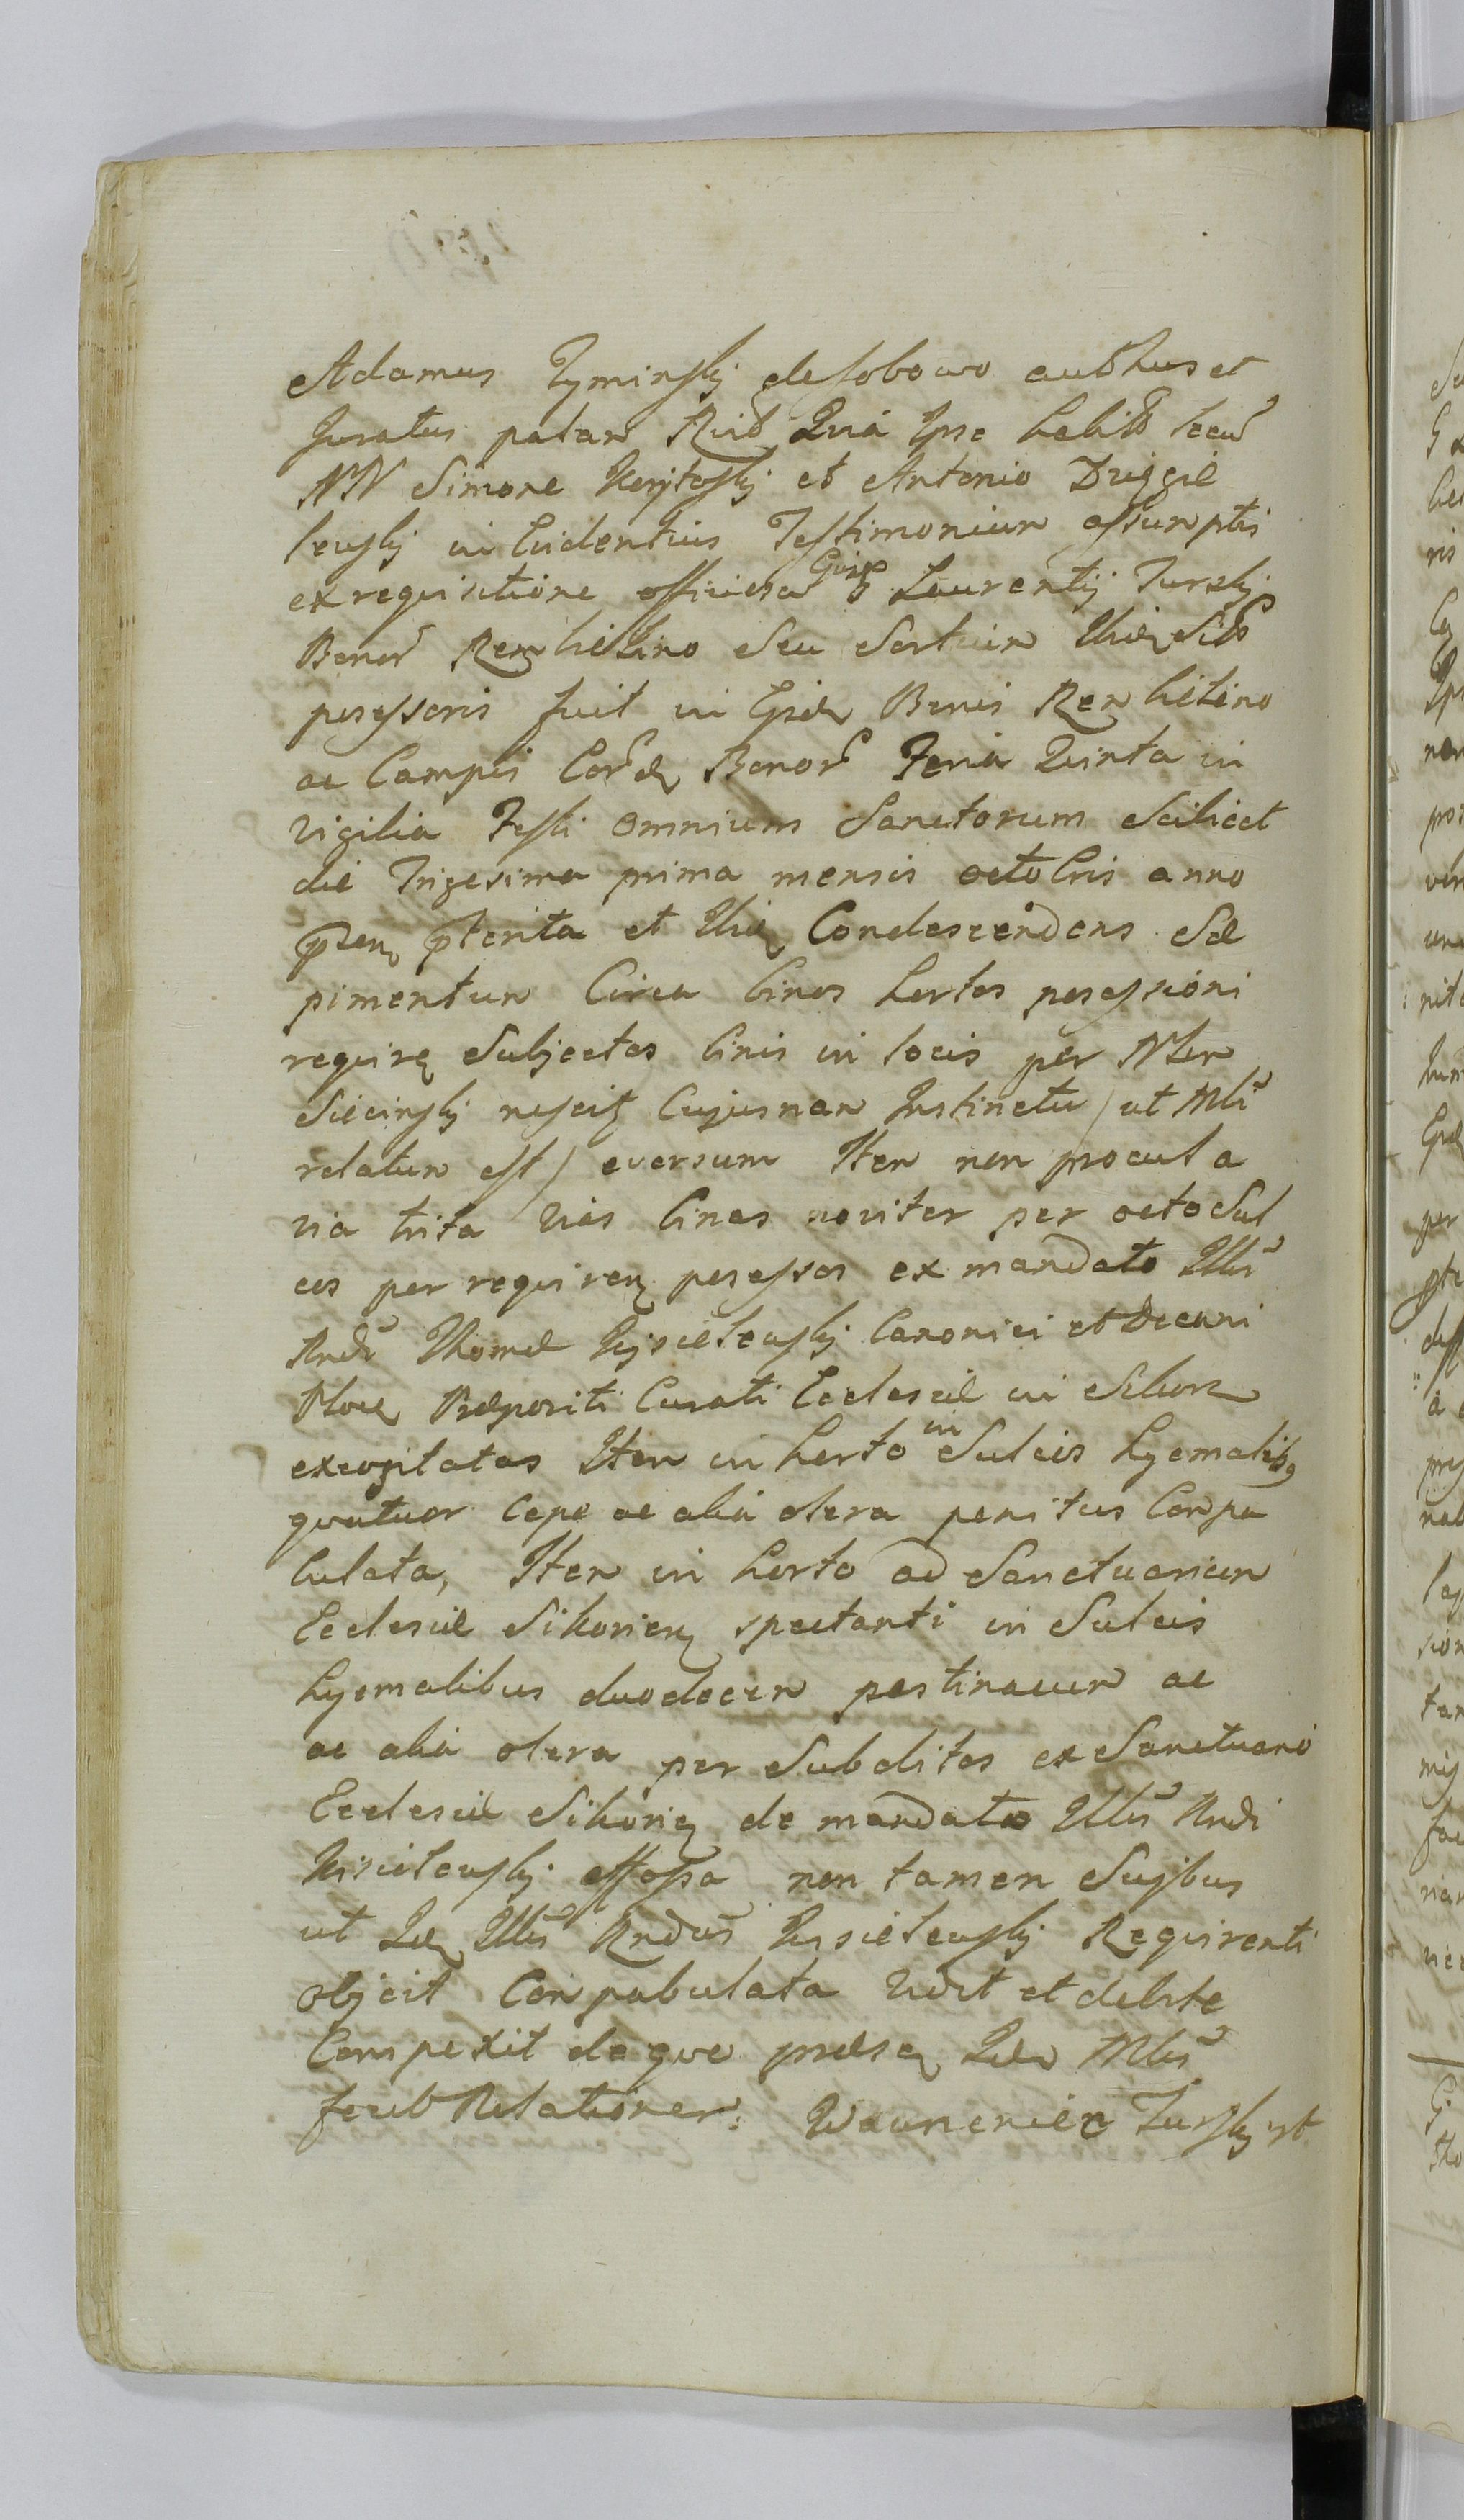 Adamus Tyminsky de Sobowo authus et
Juratus palam Quia Ipse habitis secu
NN Simone et Antonio
in Evidentius Testimonium assumptis
ex requisitione officiosa Gnsi Laurentij Tursky
Bonor seu sortium
possessoris fuit in Bonis
ac Campis Bonor Feria Quinta in
vigilia Festi omnium Sanctorum Scilicet
die Trigesima prima mensis octobris anno
pterita et Condescendens Sæ
pimentum Circa binos hortos possessioni
requiren Subjectos binis in locis per
Siecinsky Cujusnam Instinctu / ut Mti
relatum est / eversum Item non procul a
via trita vias binas noviter per octo Sul
cos per requiren possessos ex mandato Illris
Rndi Thomæ Kysielewsky Canonici et Decani
Præpositi Curati Ecclesiæ in
excogitatas Item in horto in Sulcis hyemalibq
quatuor Cepe ac alia olera penitus Conpa
bulata, Item in horto ad Sanctuarium
Ecclesiæ Sikorien spectanti in Sulcis
hyemalibus duodecem pastinacum ac
ac alia olera per Subditos ex Sanctuario
Ecclesiæ Sikorien de mandato Illris Rndi
Kisielewsky effossa non tamen Suibus
ut Illris Rndus Kysielewsky Requirenti
objicit Conpabulata Vidit et debite
Conspexit de quo Mtris
fecit Relationem. Wawrzeniec Tursky